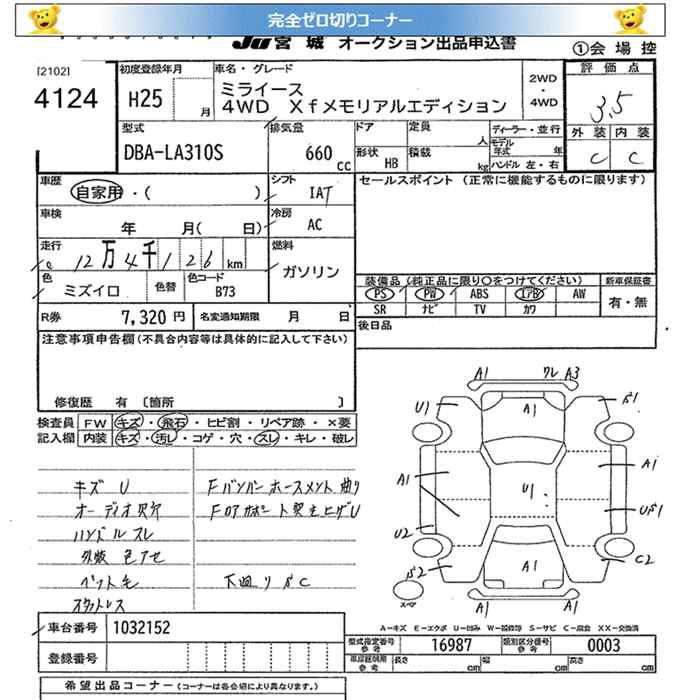 完全ゼロ切りコーナー
JU 宮城 オークション出品申込書
①会場控
[2102]
4124
初度登録年月
H25 月
車名・グレード
ミライース
4WD Xfメモリアルエディション
2WD
・
4WD
評価点
3.5
外装 内装
C C
型式
DBA-LA310S
排気量
660 CC
ドア
定員 人
形状 HB
積載 kg
ディーラー・並行
モデル年式 年
ハンドル 左・右
車歴
自家用・( )
シフト
IAT
セールスポイント (正常に機能するものに限ります)
車検
年 月( 日)
冷房
AC
走行
12万4千126km
燃料
ガソリン
色
ミズイロ
色替
色コード
B73
装備品(純正品に限り○をつけてください)
新車保証書
PS PW ABS エアB AW
SR ナビ TV カワ
有・無
R券 7,320 円
名変通知期限 月 日
後日品
注意事項申告欄(不具合内容等は具体的に記入して下さい)
修復歴 有 〔箇所 〕
検査員記入欄
FW キズ・飛石・ヒビ割・リペア跡・×要
内装 キズ・汚レ・コゲ・穴・スレ・キレ・破レ
キズ U
オーディオ欠品
ハンドルスレ
外板色アセ
ペット毛
スタットレス
Fバンパーホースメント曲り
下廻りサC
A1 ワレ A3
U1 A1
A1 U1 A1
U2
C2
A1
A1 A1
スペア
A-キズ E-エクボ U-凹み W-補修等 S-サビ C-腐食 XX-交換済
車台番号 1032152
登録番号
型式指定番号 参考 16987
類別区分番号 参考 0003
車庫証明用 参考 長さ cm 幅 cm 高さ cm
希望出品コーナー(コーナーは各会場により異なります。)